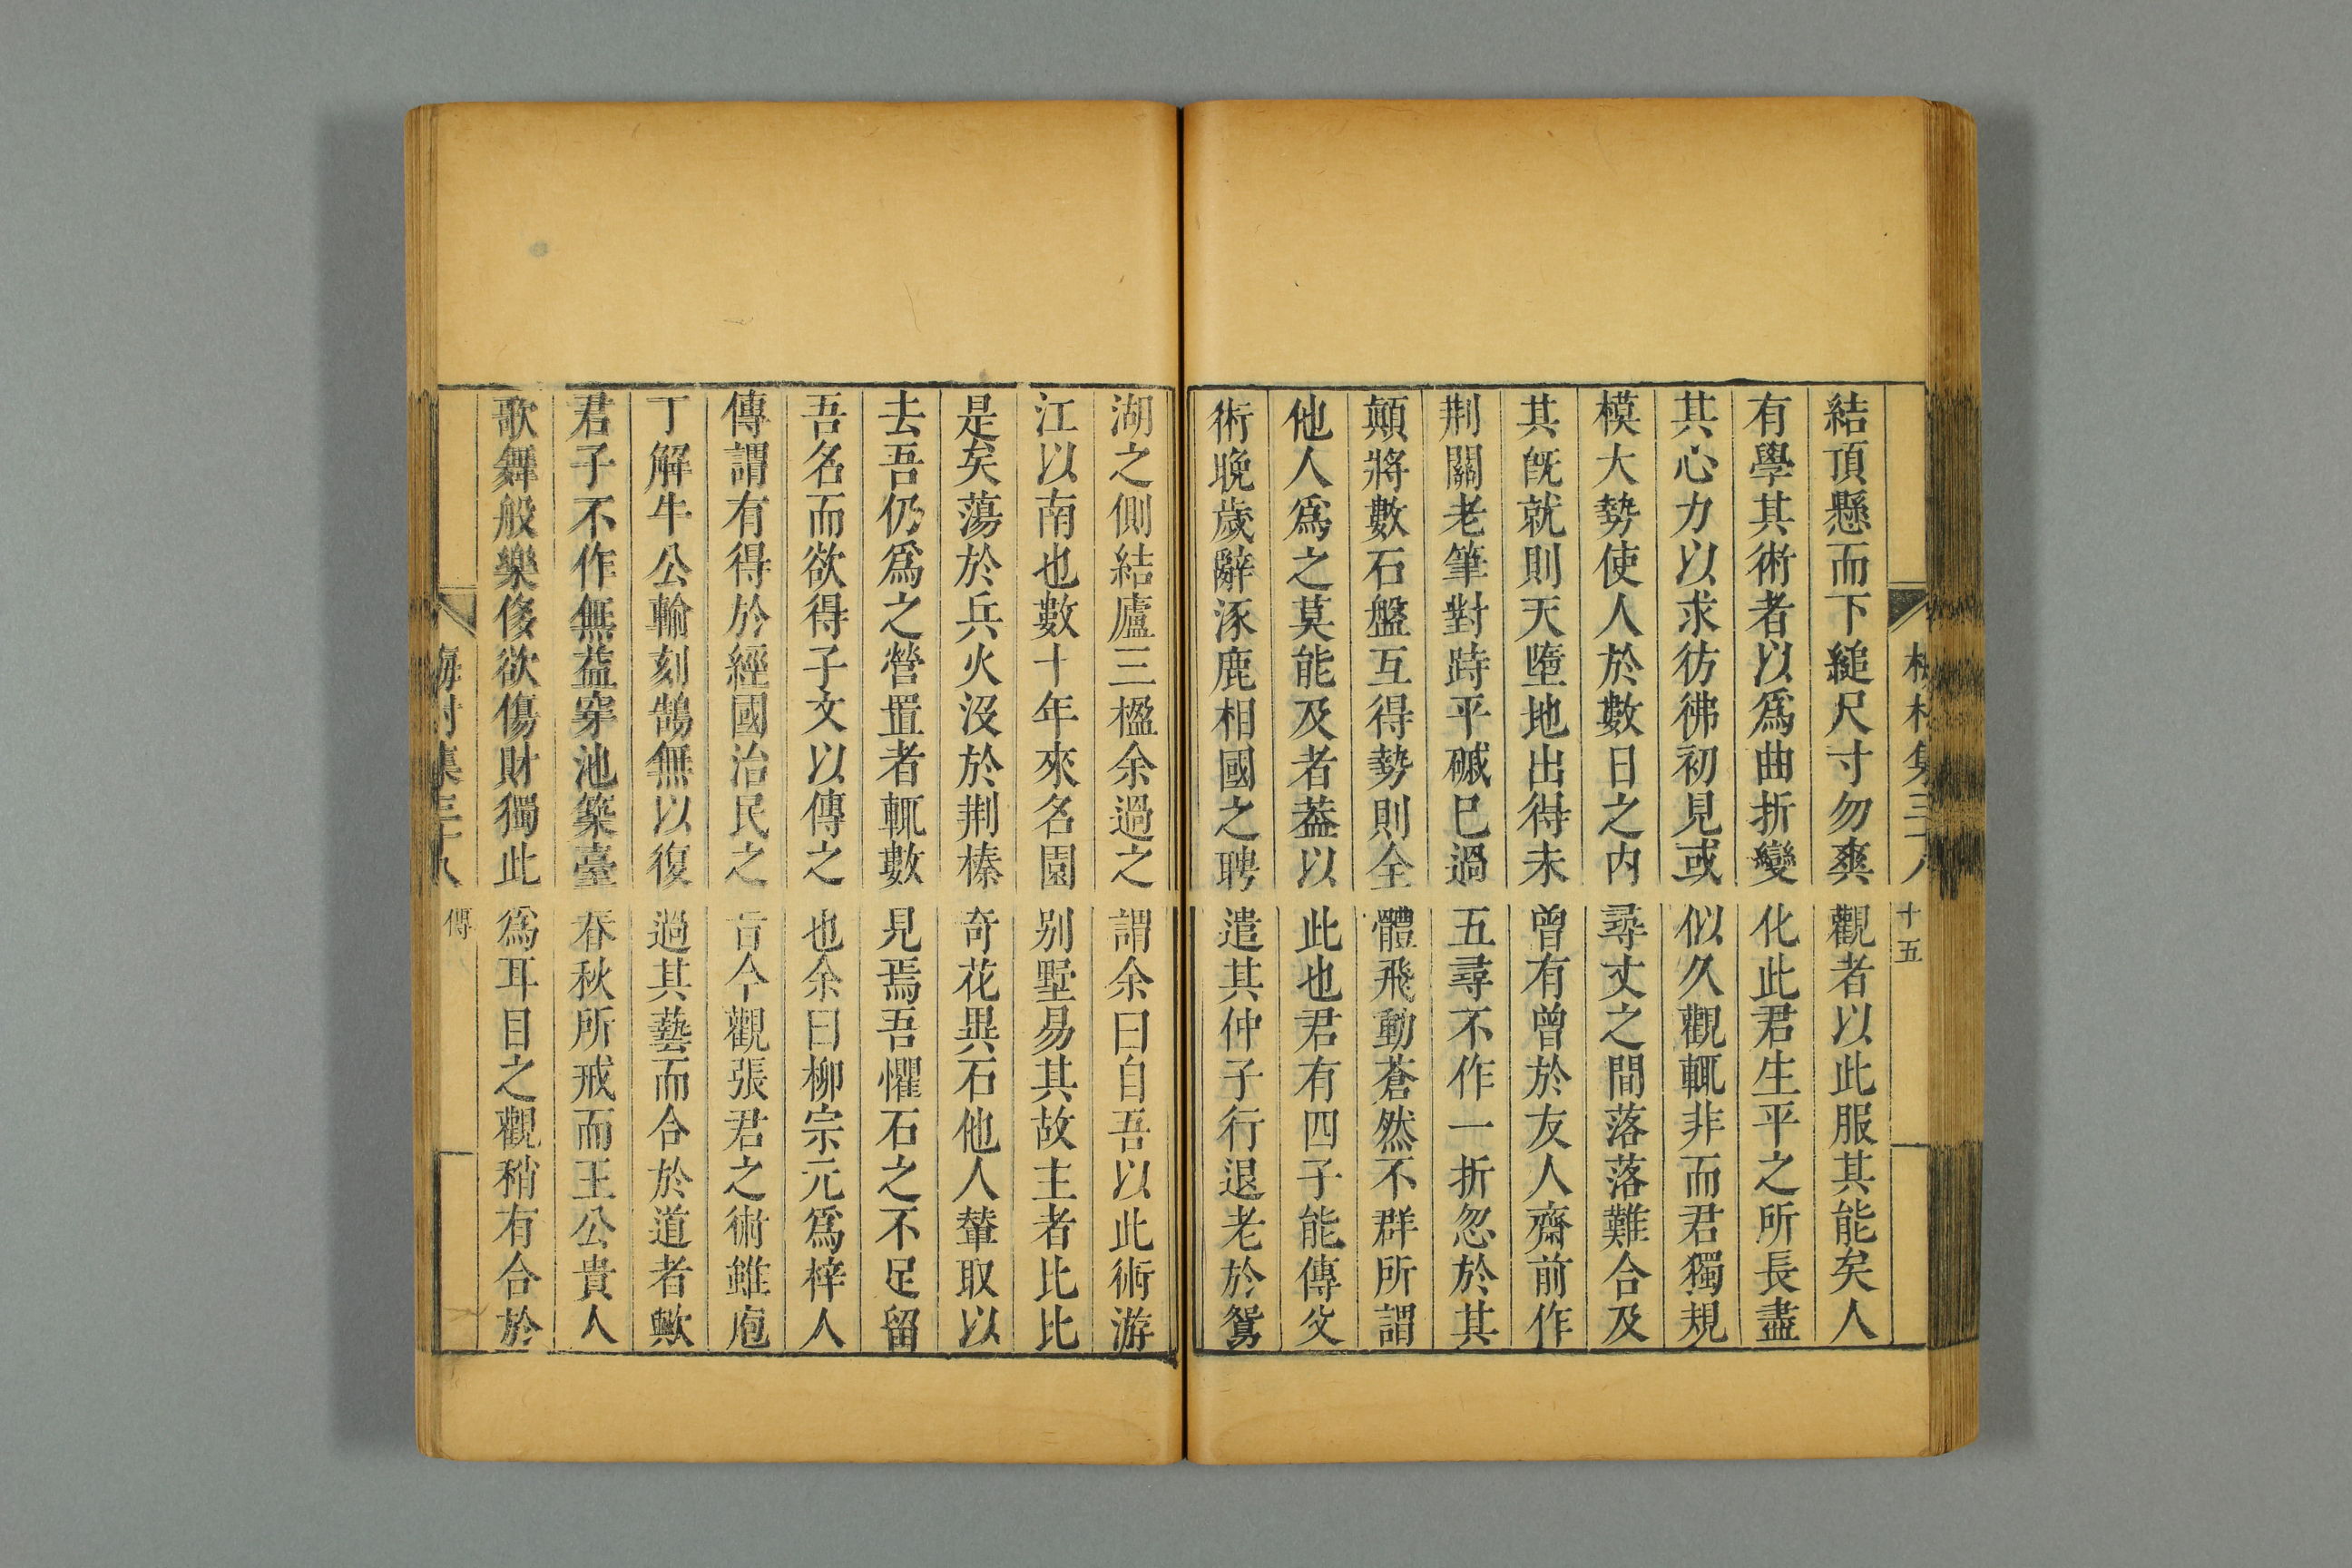 結頂懸而下縋尺寸勿爽觀者以此服其能矣人
有學其術者以爲曲折變化此君生平之所長盡
其心力以求彷彿初見或似久觀輒非而君獨規
模大勢使人於數日之内尋丈之間落落難合及
其旣就則天墮地出得未曾有曾於友人齋前作
荆關老筆對峙平磩巳過五尋不作一折忽於其
顛將數石盤互得勢則全體飛動蒼然不群所謂
他人爲之莫能及者葢以此也君有四子能傳父
術晚歲辭涿鹿相國之聘遣其仲子行退老於鴛
湖之側結廬三楹余過之謂余曰自吾以此術游
江以南也數十年來名園别墅易其故主者比比
是矣蕩於兵火沒於荆榛奇花異石他人輦取以
去吾仍爲之營置者輒數見焉吾懼石之不足留
吾名而欲得子文以傳之也余曰柳宗元爲梓人
傳謂有得於經國治民之旨今觀張君之術雖庖
丁解牛公輸刻鵠無以復過其藝而合於道者歟
君子不作無益穿池築臺春秋所戒而王公貴人
歌舞般樂侈欲傷財獨此爲耳目之觀稍有合於
梅村集三十八
傳
十五